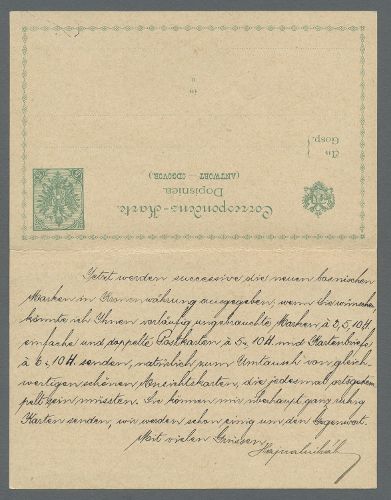 Correspondenz-Karte.
Dopisnica.
(ANTWORT — ODGOVOR)
An
Gosp.
in
u
Jetzt werden successive die neuen bosnischen
Marken in Kronenwährung ausgegeben, wenn Sie wünschen
könnte ich Ihnen vorläufig ungebrauchte Marken à 2, 5, 10 H
einfache und doppelte Postkarten à 5 - 10 H und Kartenbriefe
à 6 - 10 H senden, natürlich zum Umtausch von gleich
wertigen schönen Ansichtskarten, die jedesmal abgestem
pelt sein müssten. Sie können mir überhaupt ganz ruhig
Karten senden, wir werden schon einig um den Gegenwert.
Mit vielen Grüssen